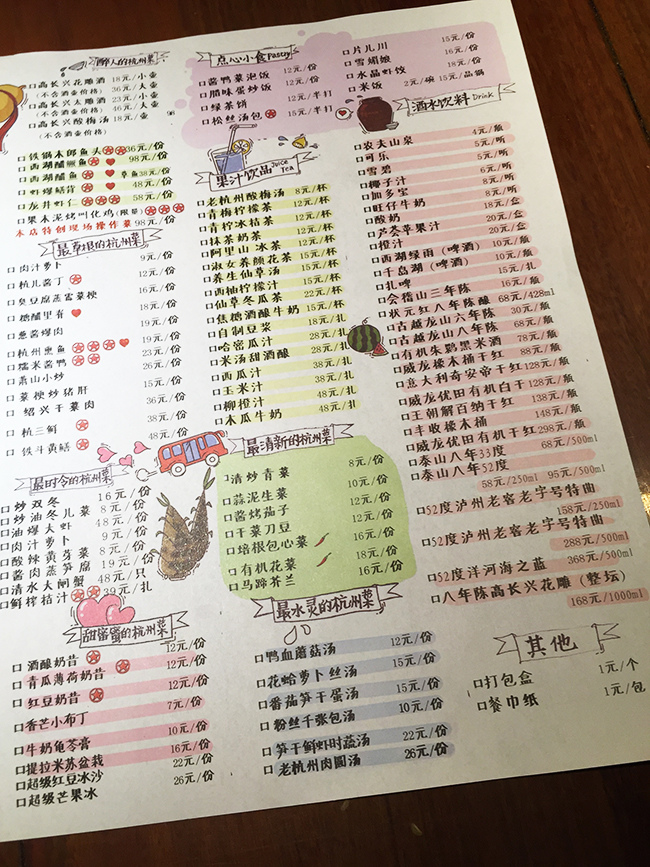 醉人的杭州菜
高长兴花雕酒 18元/小壶
(不含酒壶价格) 36元/大壶
高长兴太雕酒 23元/小壶
(不含酒壶价格) 46元/大壶
高长兴酸梅汤 18元/壶
(不含酒壶价格)
铁锅木郎鱼头 36元/份
西湖醋鳜鱼 98元/份
西湖醋鱼 草鱼38元/份
虾爆鳝背 48元/份
龙井虾仁 58元/份
果木泥烤叫化鸡(限量)
本店特创现场操作菜 98元/份
最草根的杭州菜
肉汁萝卜 9元/份
杭儿酱丁 12元/份
臭豆腐蒸霉菜梗 16元/份
糖醋里脊 18元/份
葱酱爆肉 19元/份
杭州熏鱼 19元/份
糯米酱鸭 23元/份
萧山小炒 26元/份
菜梗炒猪肝 15元/份
绍兴干菜肉 36元/份
杭三鲜 38元/份
铁斗黄鳝 48元/份
最时令的杭州菜
炒双冬 16元/份
炒油冬儿菜 8元/份
油爆大虾 48元/份
肉汁萝卜 9元/份
酸辣黄芽菜 8元/份
酱肉蒸笋腐 19元/份
清水大闸蟹 48元/只
鲜榨桔汁 39元/扎
甜蜜蜜的杭州菜
酒酿奶昔 12元/份
青瓜薄荷奶昔 12元/份
红豆奶昔 12元/份
香芒小布丁 7元/份
牛奶龟苓膏 10元/份
提拉米苏盆栽 16元/份
超级红豆冰沙 22元/份
超级芒果冰 26元/份
点心小食 Pastry
酱鸭菜泡饭 12元/份
腊味蛋炒饭 12元/份
绿茶饼 15元/半打
松丝汤包 15元/半打
片儿川 15元/份
雪媚娘 16元/份
水晶虾饺 18元/份
米饭 2元/碗 15元/品锅
果汁饮品 JUICE TEA
老杭州酸梅汤 8元/杯
青梅柠檬茶 12元/杯
青柠冰桔茶 12元/杯
抹茶奶茶 12元/杯
阿里山冰茶 12元/杯
淑女养颜花茶 15元/杯
养生仙草汤 15元/杯
西柚柠檬汁 15元/杯
仙草冬瓜茶 22元/杯
焦糖酒酿牛奶 15元/杯
自制豆浆 18元/扎
哈密瓜汁 28元/扎
米汤甜酒酿 28元/扎
西瓜汁 38元/扎
玉米汁 38元/扎
柳橙汁 48元/扎
木瓜牛奶 48元/扎
最清新的杭州菜
清炒青菜 8元/份
蒜泥生菜 10元/份
酱烤茄子 12元/份
干菜刀豆 12元/份
培根包心菜 16元/份
有机花菜 18元/份
马蹄芥兰 16元/份
最水灵的杭州菜
鸭血蘑菇汤 12元/份
花蛤萝卜丝汤 15元/份
番茄笋干蛋汤 15元/份
粉丝千张包汤 10元/份
笋干鲜虾时蔬汤 22元/份
老杭州肉圆汤 26元/份
酒水饮料 Drink
农夫山泉 4元/瓶
可乐 5元/听
雪碧 5元/听
椰子汁 6元/听
加多宝 8元/听
旺仔牛奶 8元/听
酸奶 18元/盒
芦荟苹果汁 20元/盒
橙汁 20元/盒
西湖绿雨(啤酒) 10元/瓶
千岛湖(啤酒) 10元/瓶
扎啤 15元/扎
会稽山三年陈
状元红八年陈酿 68元/428ml
古越龙山六年陈 30元/瓶
古越龙山八年陈 68元/瓶
有机朱鹮黑米酒 78元/瓶
威龙橡木桶干红 88元/瓶
意大利奇安帝干红 128元/瓶
威龙优田有机白干 128元/瓶
王朝解百纳干红 138元/瓶
丰收橡木桶 148元/瓶
威龙优田有机干红 298元/瓶
泰山八年33度 68元/500ml
泰山八年52度
58元/250ml 95元/500ml
52度泸州老窖老字号特曲
158元/250ml
52度泸州老窖老字号特曲
288元/500ml
52度洋河海之蓝 368元/500ml
八年陈高长兴花雕(整坛)
168元/1000ml
其他
打包盒 1元/个
餐巾纸 1元/包